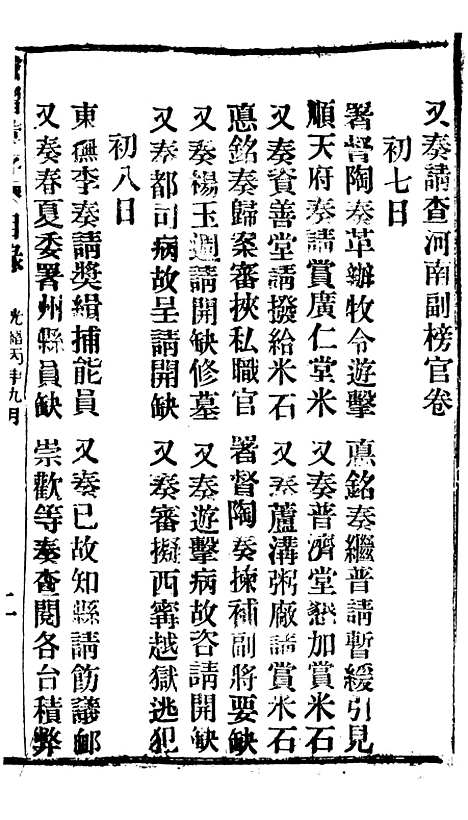 又奏請查河南副榜官卷
初七日
署督陶奏革辦牧令遊擊　悳銘奏繼普請暫緩引見
順天府奏請賞廣仁堂米　又奏普濟堂懇加賞米石
又奏資善堂請撥給米石　又奏蘆溝粥厰請賞米石
悳銘奏歸案審挾私職官　署督陶奏揀補副將要缺
又奏楊玉週請開缺修墓　又奏遊擊病故咨請開缺
又奏都司病故呈請開缺　又奏審擬西寗越獄逃犯
初八日
東撫李奏請奬緝捕能員　又奏已故知縣請飭議卹
又奏春夏委署州縣員缺　崇歡等奏查閱各台積弊
目錄　光緒　年九月　二